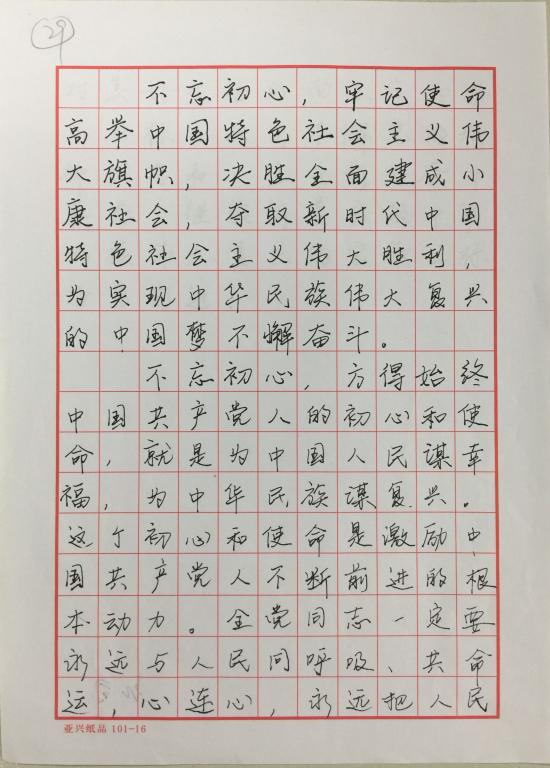 29
不忘初心，牢记使命
高举中国特色社会主义伟
大旗帜，决胜全面建成小
康社会，夺取新时代中国
特色社会主义伟大胜利，
为实现中华民族伟大复兴
的中国梦不懈奋斗。
不忘初心，方得始终
中国共产党人的初心和使
命，就是为中国人民谋幸
福，为中华民族谋复兴。
这个初心和使命是激励中
国共产党人不断前进的根
本动力。全党同志一定要
永远与人民同呼吸、共命
运，心连心，永远把人民
亚兴纸品 101-16